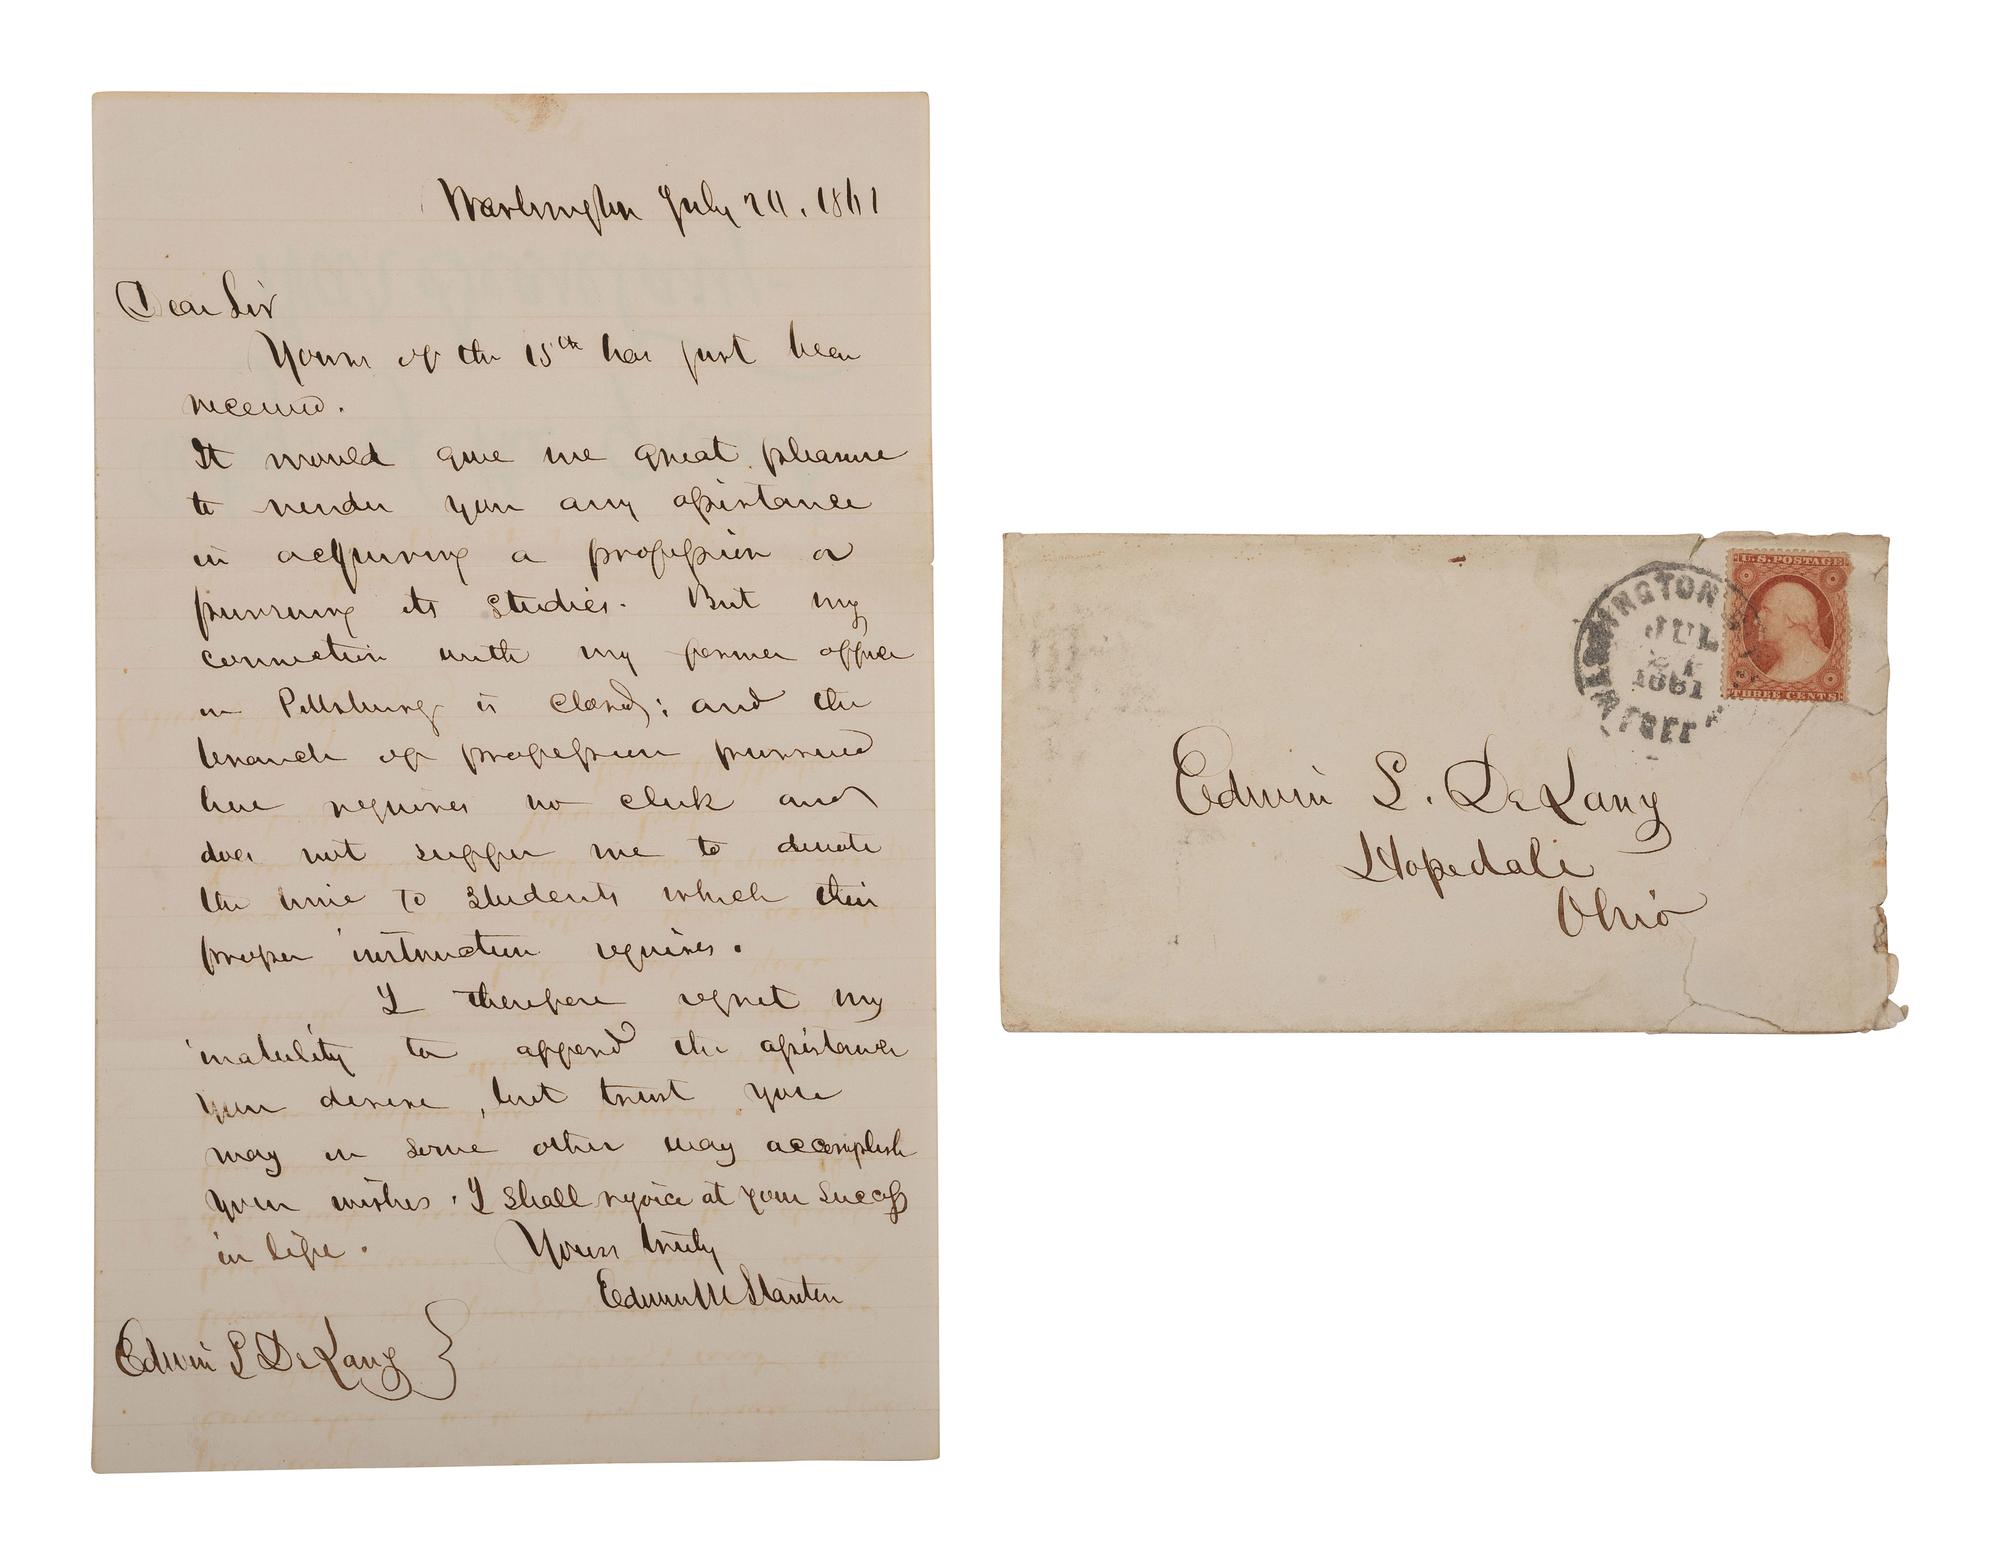 Washington July 20, 1861
Dear Sir
Yours of the 15th has just been
received.
It would give me great pleasure
to render you any assistance
in acquiring a profession or
pursuing its studies. But my
connection with my former office
in Pittsburg is closed; and the
branch of profession pursued
here requires no clerk and
does not suffer me to devote
the time to students which their
proper instruction requires.
I therefore regret my
inability to afford the assistance
you desire, but trust you
may in some other way accomplish
your wishes. I shall rejoice at your success
in life.
Yours truly
Edwin M Stanton
Edwin S DeLany
U.S. POSTAGE
THREE CENTS
WASHINGTON
JUL
21
1861
FREE
Edwin S. DeLany
Hopedale
Ohio